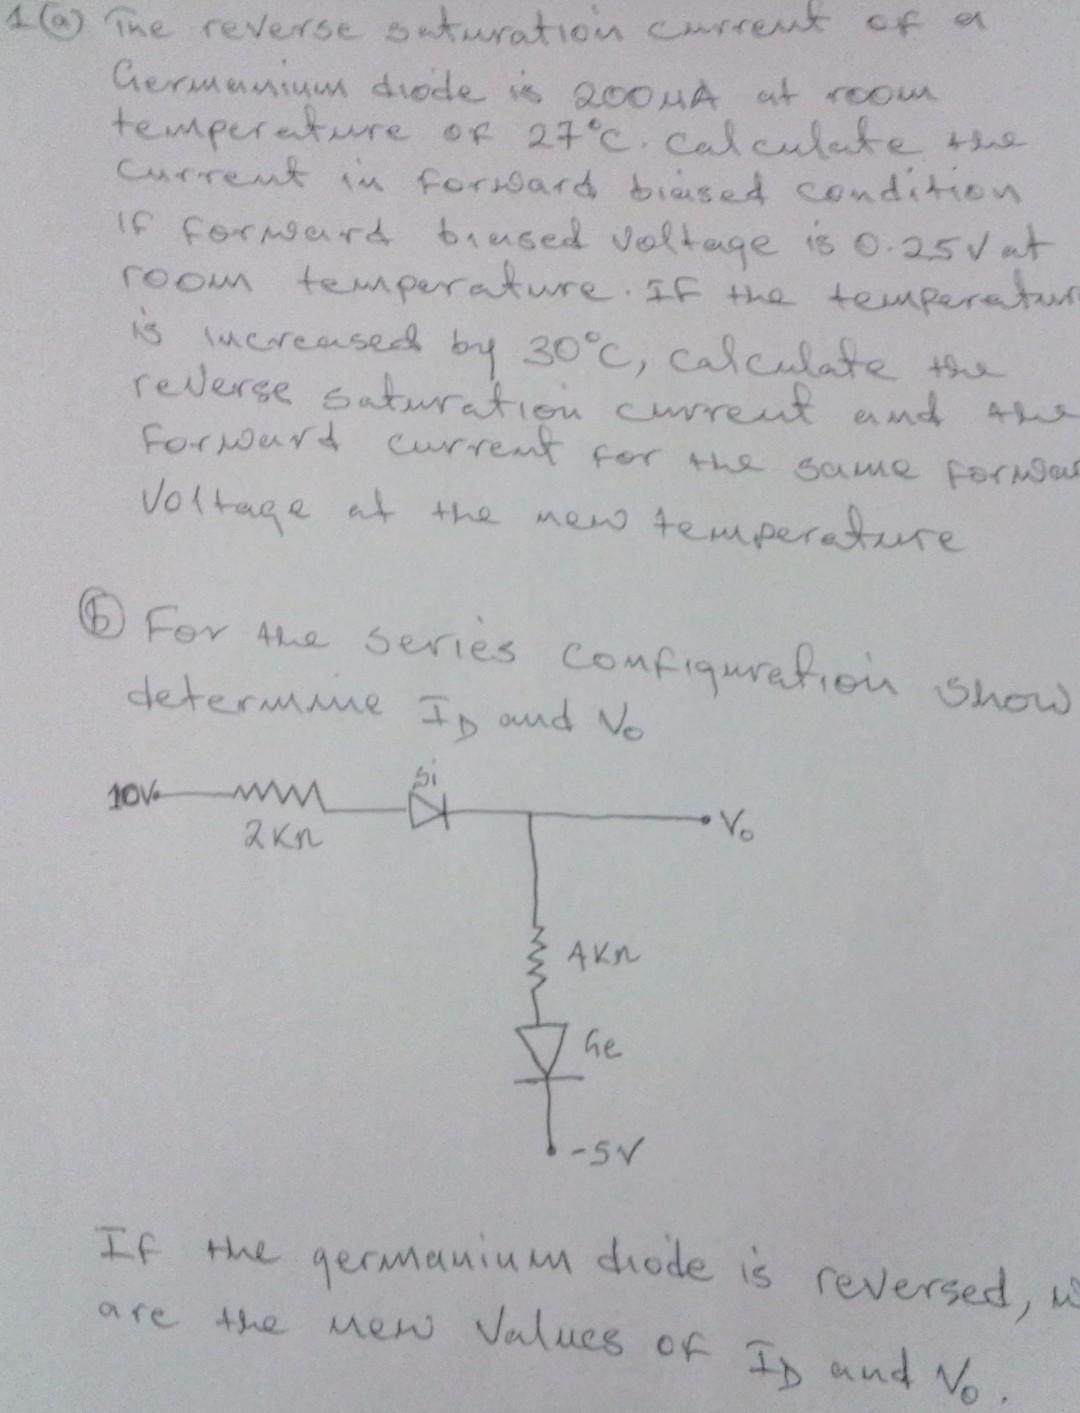 1 (a) The reverse saturation current of a
Germanium diode is 200μA at room
temperature of 27°C. Calculate the
Current in forward biased condition
if forward biased Voltage is 0.25V at
room temperature. If the temperatur
is increased by 30°C, calculate the
reverse saturation current and the
forward current for the same forwar
Voltage at the new temperature
(b) For the series configuration show
determine I_D and V_o
10V
Si
2KΩ
V_o
4KΩ
Ge
-5V
If the germanium diode is reversed, w
are the new values of I_D and V_o.